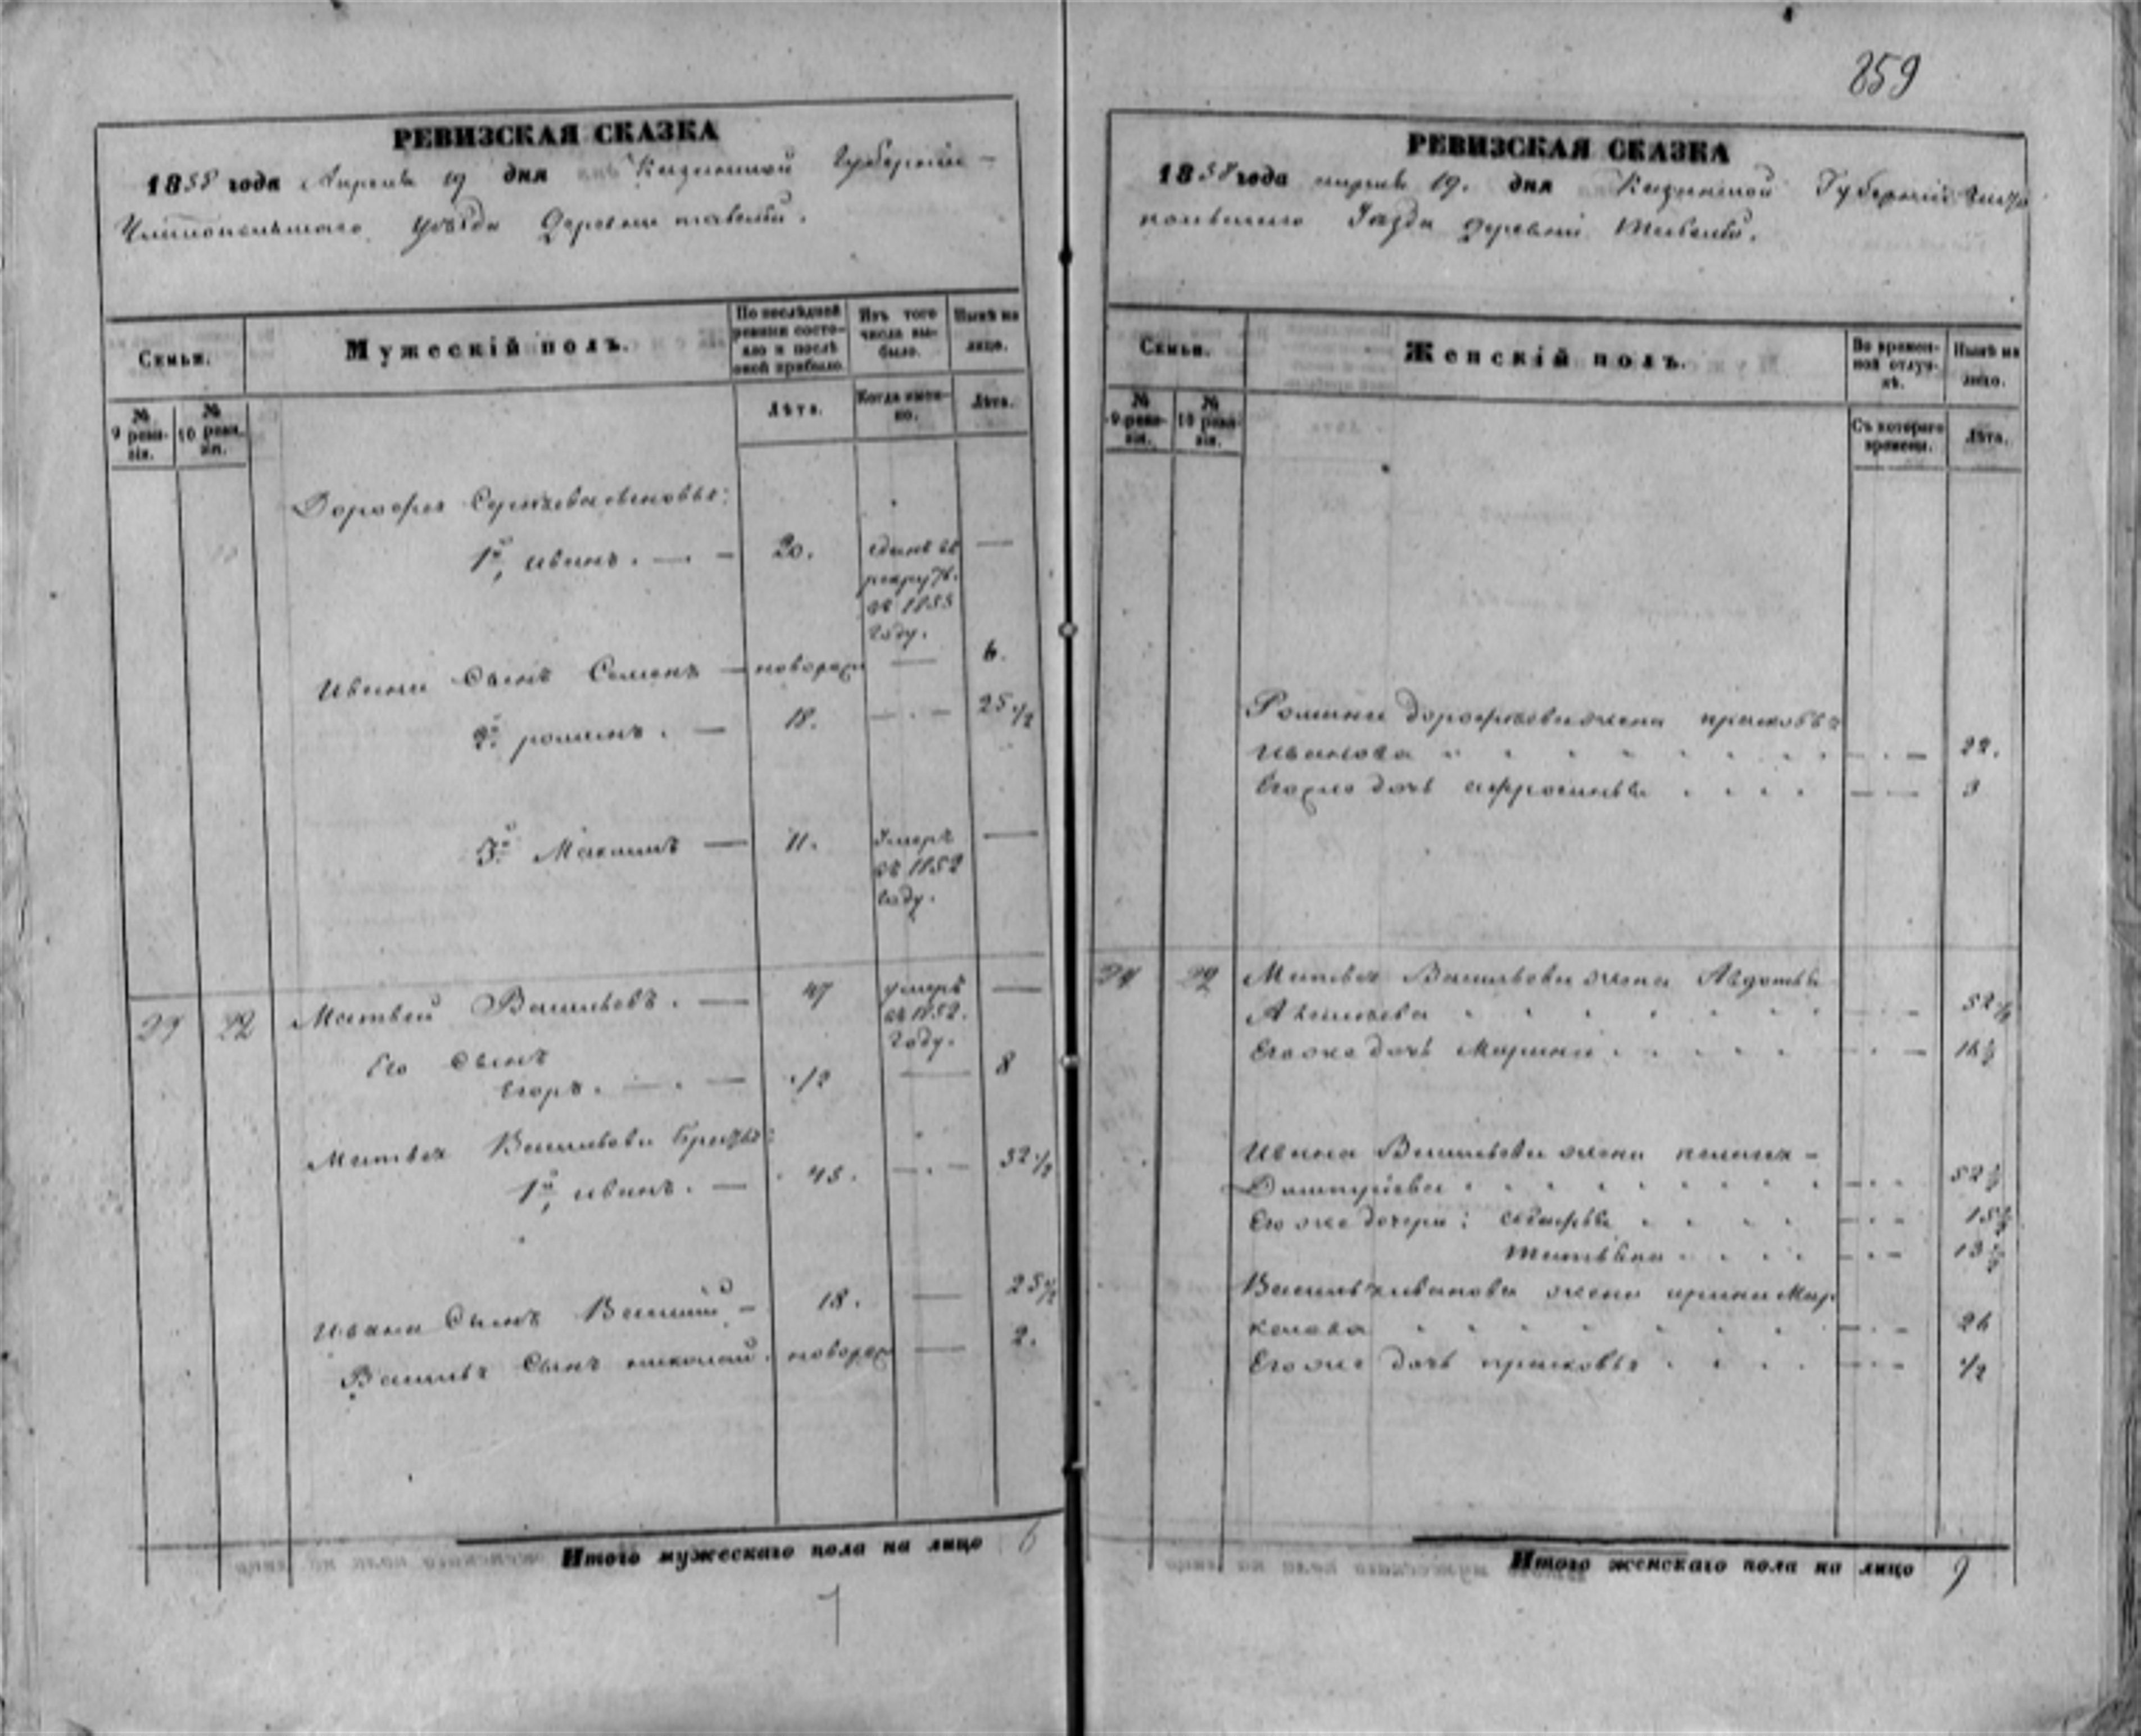 859
РЕВИЗСКАЯ СКАЗКА
1858 года Апреля 19 дня Казанской Губернии —
уѣзда Деревни
Семьи.
Мужескій полъ.
По послѣдней ревизіи состояло и послѣ оной прибыло.
Изъ того числа выбыло.
Нынѣ на лицо.
№ 9 ревизіи.
№ 10 ревизіи.
Лѣта.
Когда именно.
Лѣта.
Дорофея
1й, иванъ. — — 20. рекрут. въ 1855 году. —
Ивана Сынъ Семенъ — новорож — 6.
2й романъ. — 18. — . — 25 1/2
3й Максимъ — 11. Умеръ въ 1852 году. —
22 Матвей Васильевъ. — 47 умеръ въ 1852. году. —
Его Сынъ
Егоръ. — . — 1/2 — 8
Матвея Васильева братья:
1й, иванъ. — 45. — . — 52 1/2
Ивана Сынъ Василій — 18. — 25 1/2
Василья Сынъ николай. новорож — 2.
Итого мужескаго пола на лицо 6
РЕВИЗСКАЯ СКАЗКА
1858 года апреля 19. дня Казанской Губерніи
Уѣзда деревни
Семьи.
Женскій полъ.
Во временной отлучкѣ.
Нынѣ на лицо.
№ 9 ревизіи.
№ 10 ревизіи.
Съ котораго времени.
Лѣта.
Романа Дорофеева жена прасковья
Иванова — . — 22.
Егоже дочь афросинья — — 3
22 Матвея Васильева жена Авдотья
52 1/2
Егоже дочь Марина — . — 16 1/2
Ивана Васильева жена пелагея —
Дмитріева — . - 52 1/2
Егоже дочери: 15 1/2
татьяна — . - 13 1/2
Василья иванова жена ирина Мар
келова — . - 26
Егоже дочь прасковья — . - 1/2
Итого женскаго пола на лицо 9